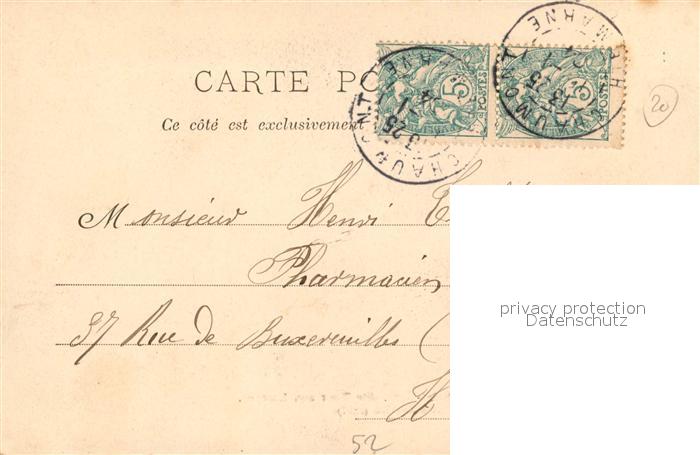 CARTE PO
Ce côté est exclusivement
5 POSTES
5 POSTES
CHAUMONT
3 25
CHAUMONT
HTE MARNE
20
Monsieur Henri
Pharmacien
37 Rue de Buxereuilles (
H
52
privacy protection
Datenschutz